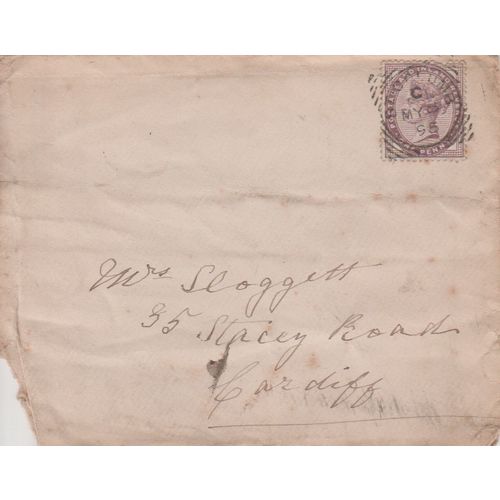 C
MY
95
PENNY
Mrs Sloggett
35 Stacey Road
Cardiff